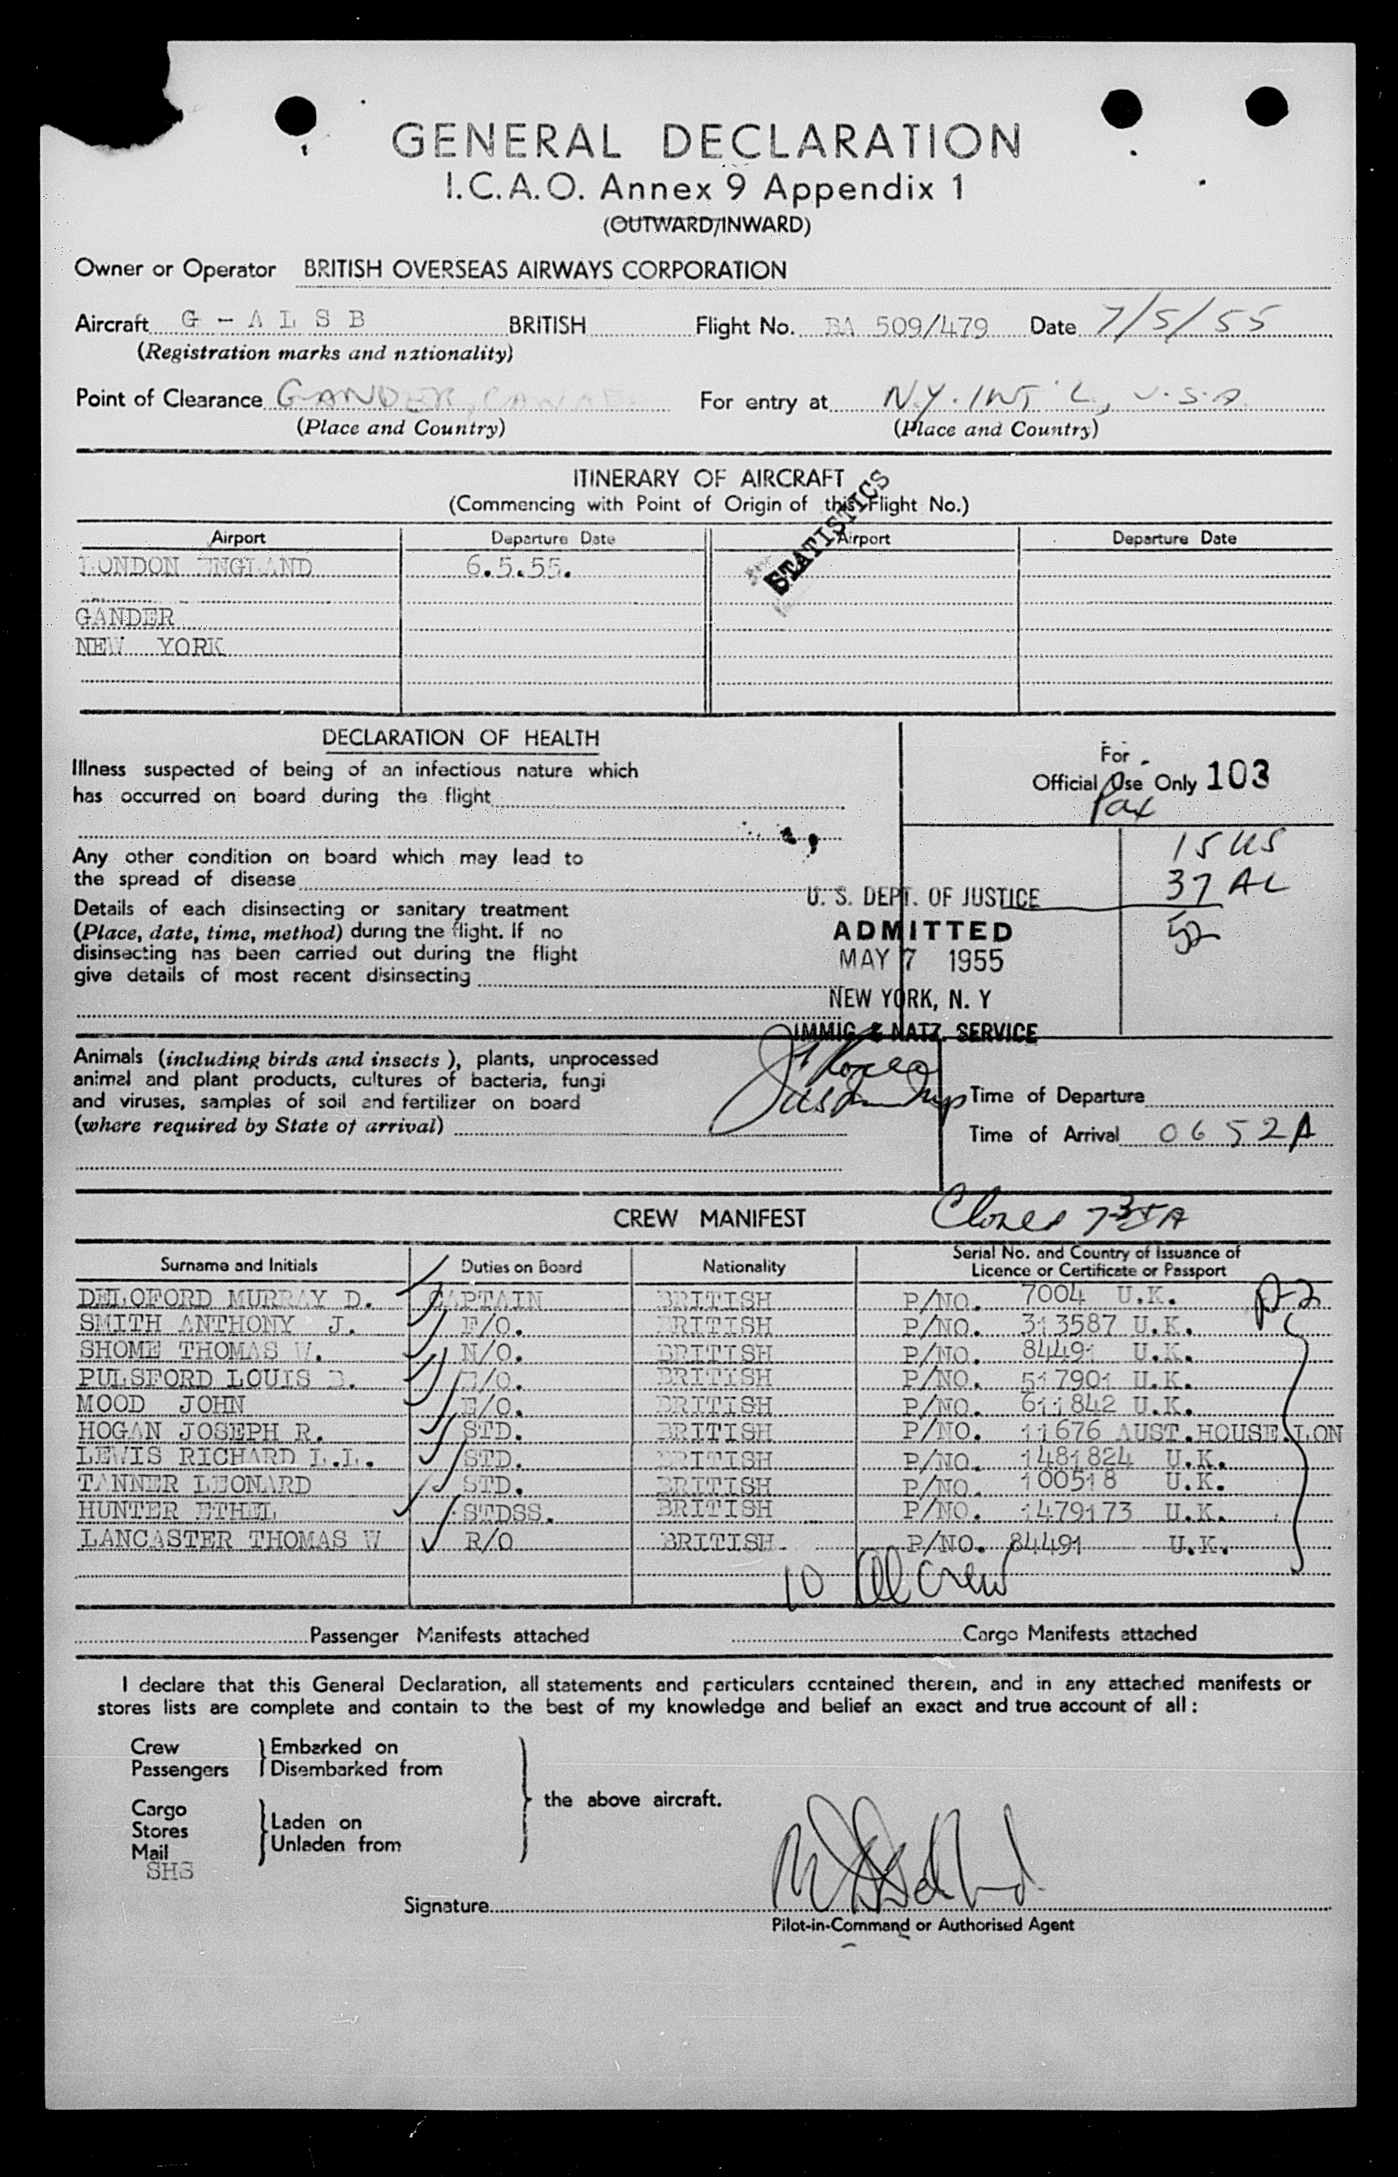 GENERAL DECLARATION
I.C.A.O. Annex 9 Appendix 1
(OUTWARD/INWARD)
Owner or Operator BRITISH OVERSEAS AIRWAYS CORPORATION
Aircraft G - A L S B BRITISH Flight No. BA 509/479 Date 7/5/55
(Registration marks and nationality)
Point of Clearance GANDER, For entry at N.Y. INT'L, U.S.A.
(Place and Country) (Place and Country)
ITINERARY OF AIRCRAFT
(Commencing with Point of Origin of this Flight No.)
STATISTICS
Airport Departure Date Airport Departure Date
LONDON ENGLAND 6.5.55.
GANDER
NEW YORK
DECLARATION OF HEALTH
Illness suspected of being of an infectious nature which
has occurred on board during the flight
For
Official Use Only 103
Pax
15 US
37 AL
52
Any other condition on board which may lead to
the spread of disease
Details of each disinsecting or sanitary treatment
(Place, date, time, method) during the flight. If no
disinsecting has been carried out during the flight
give details of most recent disinsecting
U. S. DEPT. OF JUSTICE
ADMITTED
MAY 7 1955
NEW YORK, N. Y
IMMIG & NATZ. SERVICE
Animals (including birds and insects), plants, unprocessed
animal and plant products, cultures of bacteria, fungi
and viruses, samples of soil and fertilizer on board
(where required by State of arrival)
Time of Departure
Time of Arrival 0652A
CREW MANIFEST
Closed 735A
Surname and Initials Duties on Board Nationality Serial No. and Country of Issuance of
Licence or Certificate or Passport
DELOFORD MURRAY D. CAPTAIN BRITISH P/NO. 7004 U.K. D-2
SMITH ANTHONY J. F/O. BRITISH P/NO. 313587 U.K.
SHOME THOMAS W. N/O. BRITISH P/NO. 84491 U.K.
PULSFORD LOUIS B. E/O. BRITISH P/NO. 517901 U.K.
MOOD JOHN E/O. BRITISH P/NO. 611842 U.K.
HOGAN JOSEPH R. STD. BRITISH P/NO. 11676 AUST.HOUSE.LON
LEWIS RICHARD L.L. STD. BRITISH P/NO. 1481824 U.K.
TANNER LEONARD STD. BRITISH P/NO. 100518 U.K.
HUNTER ETHEL STDSS. BRITISH P/NO. 1479173 U.K.
LANCASTER THOMAS W R/O BRITISH P/NO. 84491 U.K.
10 All Crew
Passenger Manifests attached Cargo Manifests attached
I declare that this General Declaration, all statements and particulars contained therein, and in any attached manifests or
stores lists are complete and contain to the best of my knowledge and belief an exact and true account of all:
Crew Embarked on
Passengers Disembarked from
the above aircraft.
Cargo
Stores Laden on
Mail Unladen from
SHS
Signature
Pilot-in-Command or Authorised Agent